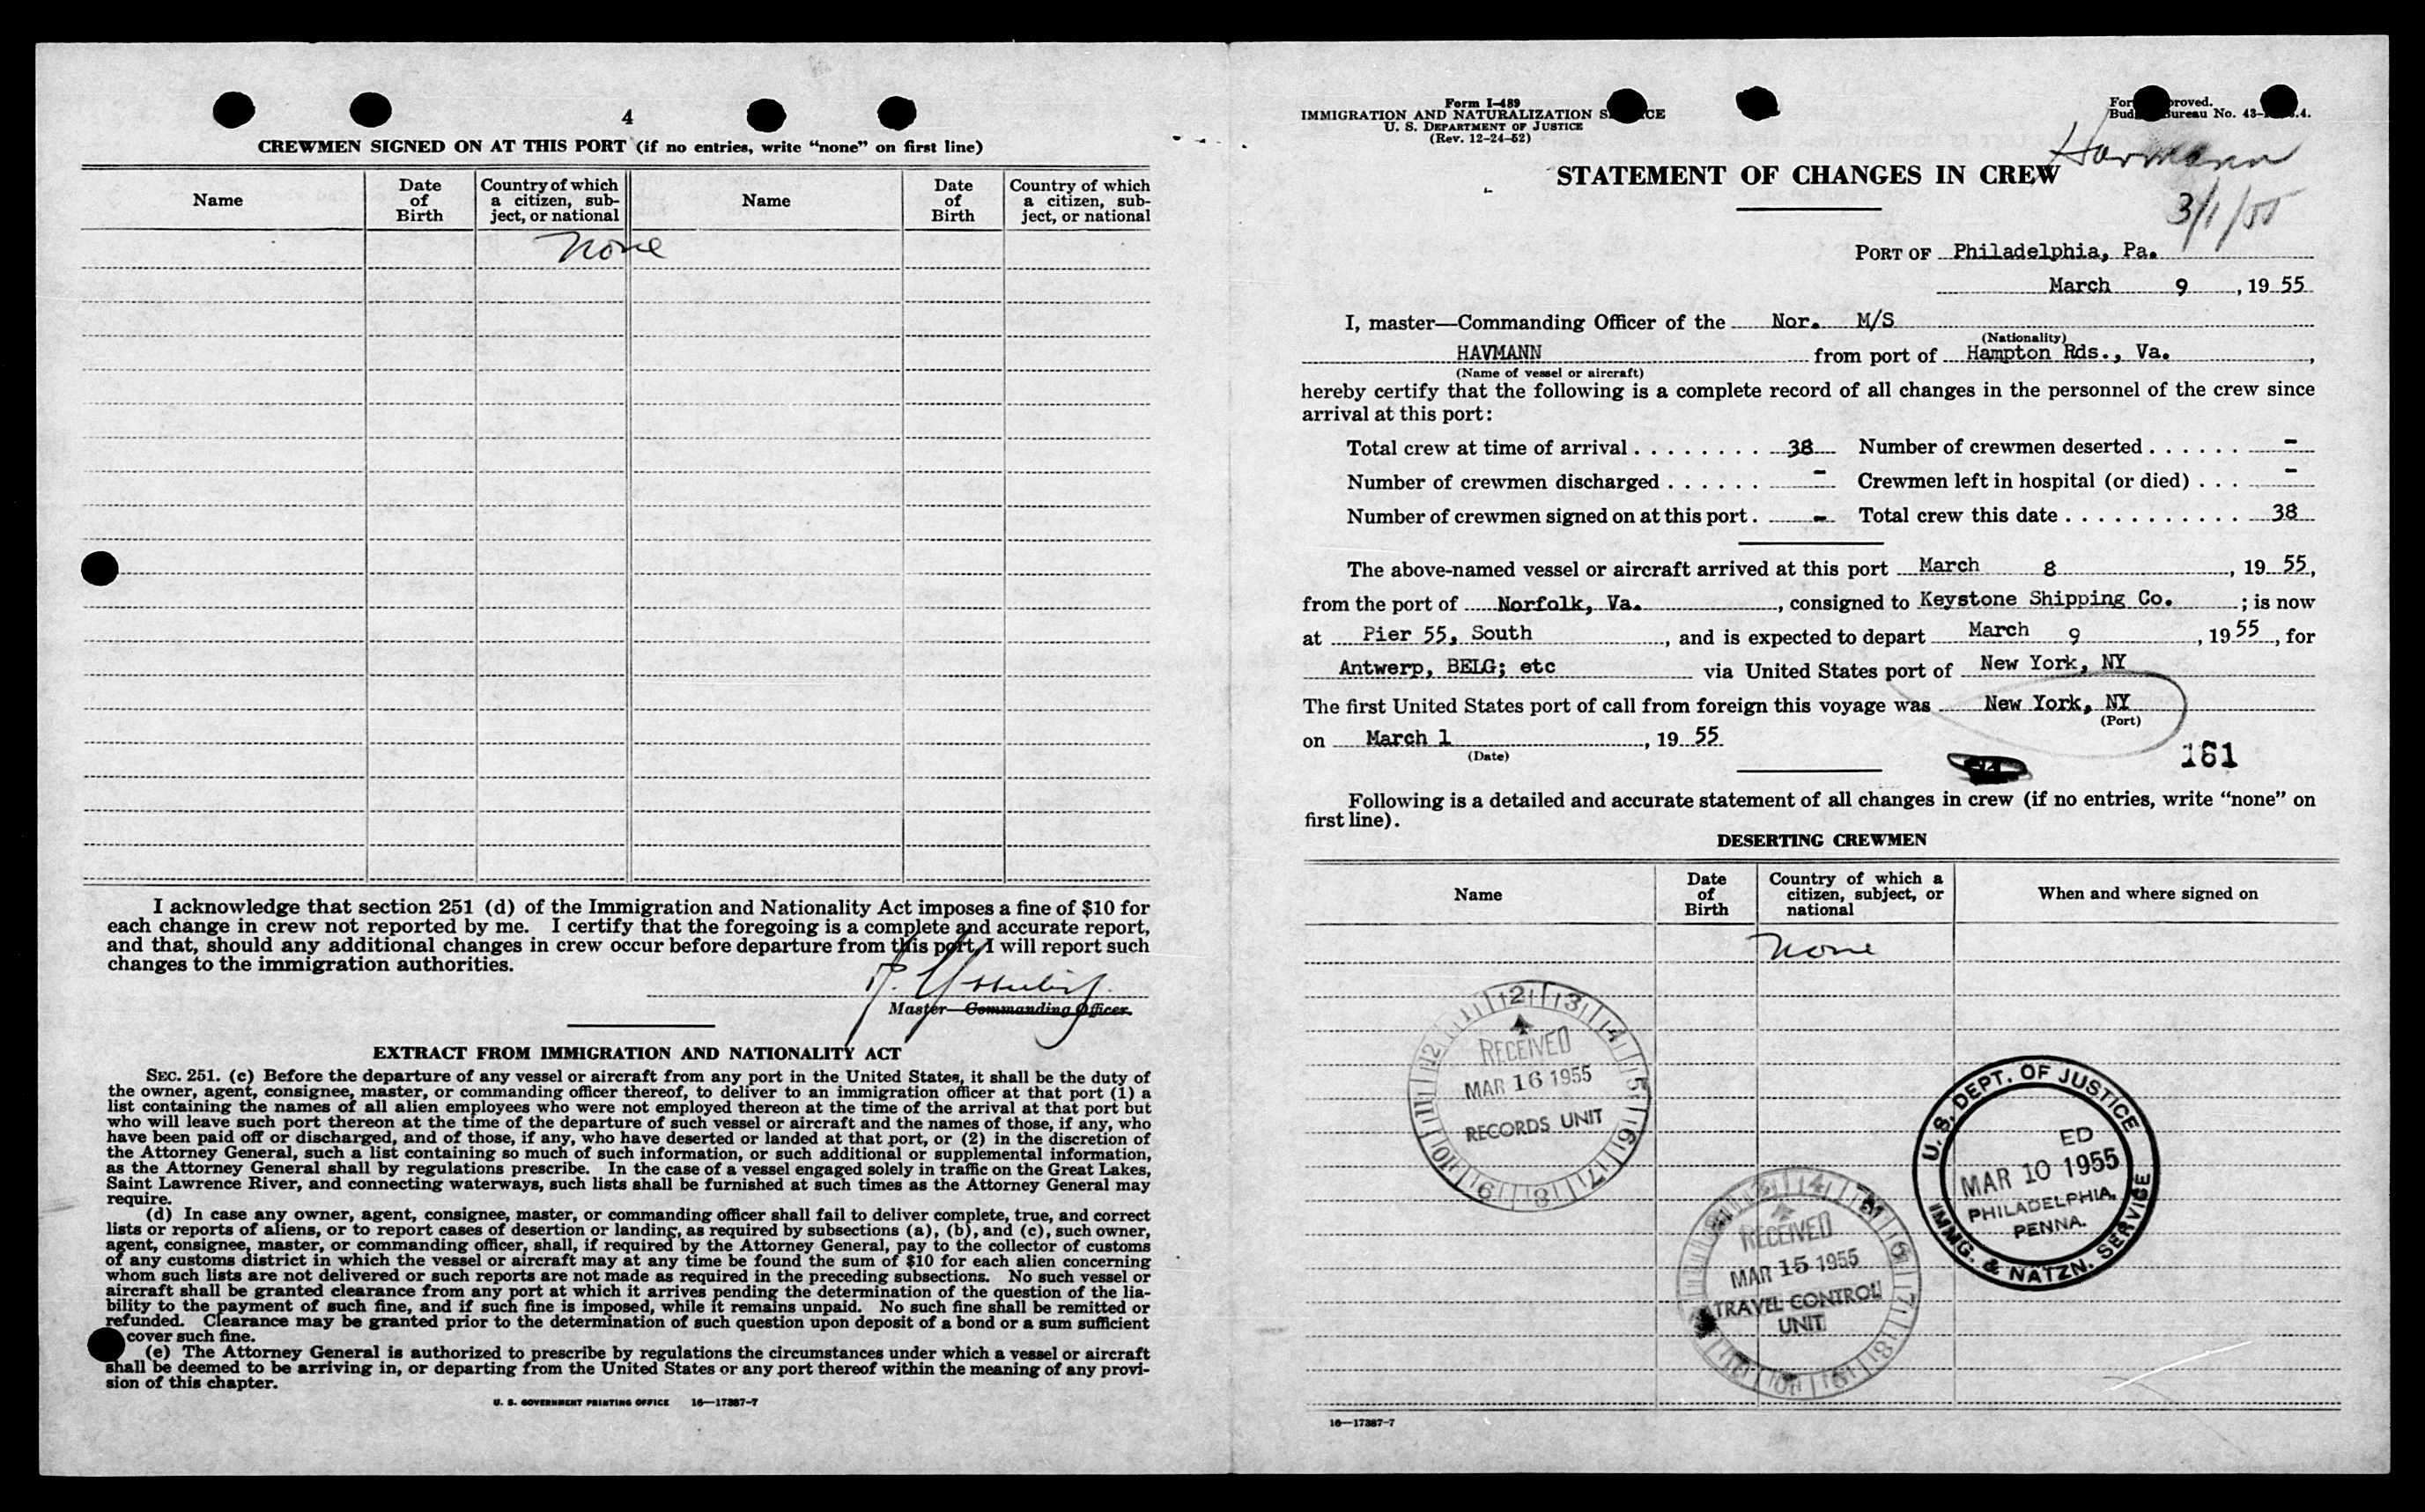 4
CREWMEN SIGNED ON AT THIS PORT (if no entries, write "none" on first line)
Name
Date of Birth
Country of which a citizen, sub-ject, or national
Name
Date of Birth
Country of which a citizen, sub-ject, or national
None
I acknowledge that section 251 (d) of the Immigration and Nationality Act imposes a fine of $10 for
each change in crew not reported by me. I certify that the foregoing is a complete and accurate report,
and that, should any additional changes in crew occur before departure from this port, I will report such
changes to the immigration authorities.
Master—Commanding Officer.
EXTRACT FROM IMMIGRATION AND NATIONALITY ACT
SEC. 251. (c) Before the departure of any vessel or aircraft from any port in the United States, it shall be the duty of
the owner, agent, consignee, master, or commanding officer thereof, to deliver to an immigration officer at that port (1) a
list containing the names of all alien employees who were not employed thereon at the time of the arrival at that port but
who will leave such port thereon at the time of the departure of such vessel or aircraft and the names of those, if any, who
have been paid off or discharged, and of those, if any, who have deserted or landed at that port, or (2) in the discretion of
the Attorney General, such a list containing so much of such information, or such additional or supplemental information,
as the Attorney General shall by regulations prescribe. In the case of a vessel engaged solely in traffic on the Great Lakes,
Saint Lawrence River, and connecting waterways, such lists shall be furnished at such times as the Attorney General may
require.
(d) In case any owner, agent, consignee, master, or commanding officer shall fail to deliver complete, true, and correct
lists or reports of aliens, or to report cases of desertion or landing, as required by subsections (a), (b), and (c), such owner,
agent, consignee, master, or commanding officer, shall, if required by the Attorney General, pay to the collector of customs
of any customs district in which the vessel or aircraft may at any time be found the sum of $10 for each alien concerning
whom such lists are not delivered or such reports are not made as required in the preceding subsections. No such vessel or
aircraft shall be granted clearance from any port at which it arrives pending the determination of the question of the lia-
bility to the payment of such fine, and if such fine is imposed, while it remains unpaid. No such fine shall be remitted or
refunded. Clearance may be granted prior to the determination of such question upon deposit of a bond or a sum sufficient
cover such fine.
(e) The Attorney General is authorized to prescribe by regulations the circumstances under which a vessel or aircraft
shall be deemed to be arriving in, or departing from the United States or any port thereof within the meaning of any provi-
sion of this chapter.
U. S. GOVERNMENT PRINTING OFFICE 16—17387-7
Form I-489
IMMIGRATION AND NATURALIZATION S CE
U. S. DEPARTMENT OF JUSTICE
(Rev. 12-24-52)
For proved.
Bud ureau No. 43- .4.
Havmann
3/1/55
STATEMENT OF CHANGES IN CREW
PORT OF Philadelphia, Pa.
March 9, 1955
I, master—Commanding Officer of the Nor. M/S
(Nationality)
HAVMANN from port of Hampton Rds., Va.,
(Name of vessel or aircraft)
hereby certify that the following is a complete record of all changes in the personnel of the crew since
arrival at this port:
Total crew at time of arrival . . . . . . . . 38 Number of crewmen deserted . . . . . . -
Number of crewmen discharged . . . . . . - Crewmen left in hospital (or died) . . . -
Number of crewmen signed on at this port . - Total crew this date . . . . . . . . . . . 38
The above-named vessel or aircraft arrived at this port March 8, 1955,
from the port of Norfolk, Va., consigned to Keystone Shipping Co.; is now
at Pier 55, South, and is expected to depart March 9, 1955, for
Antwerp, BELG; etc via United States port of New York, NY
The first United States port of call from foreign this voyage was New York, NY
(Port)
on March 1, 1955
(Date)
161
Following is a detailed and accurate statement of all changes in crew (if no entries, write "none" on
first line).
DESERTING CREWMEN
Name
Date of Birth
Country of which a citizen, subject, or national
When and where signed on
None
RECEIVED
MAR 16 1955
RECORDS UNIT
RECEIVED
MAR 15 1955
TRAVEL CONTROL
UNIT
U. S. DEPT. OF JUSTICE
ED
MAR 10 1955
PHILADELPHIA,
PENNA.
IMMG. & NATZN. SERVICE
16—17387-7